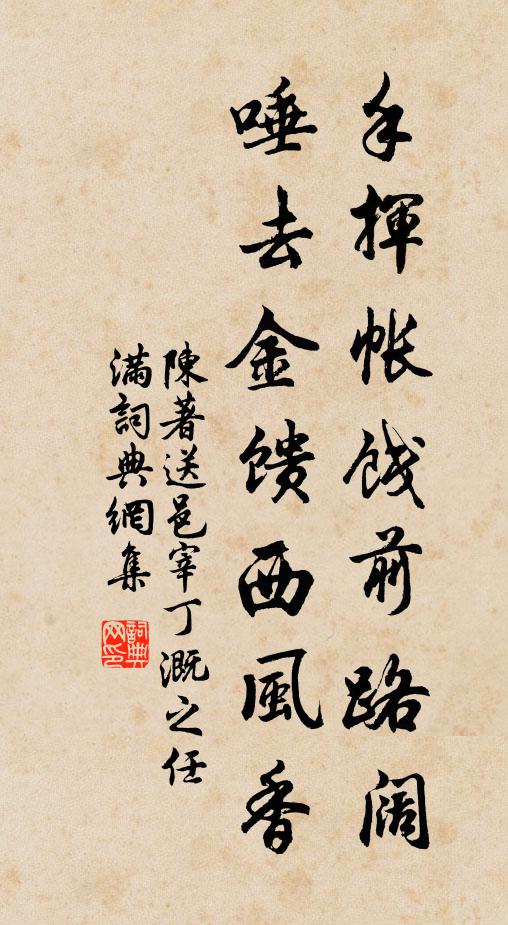 手揮帐饯前路阔
唾去金馈西風香
陳著送邑宰丁溉之任
满詞典網集
詞典网印